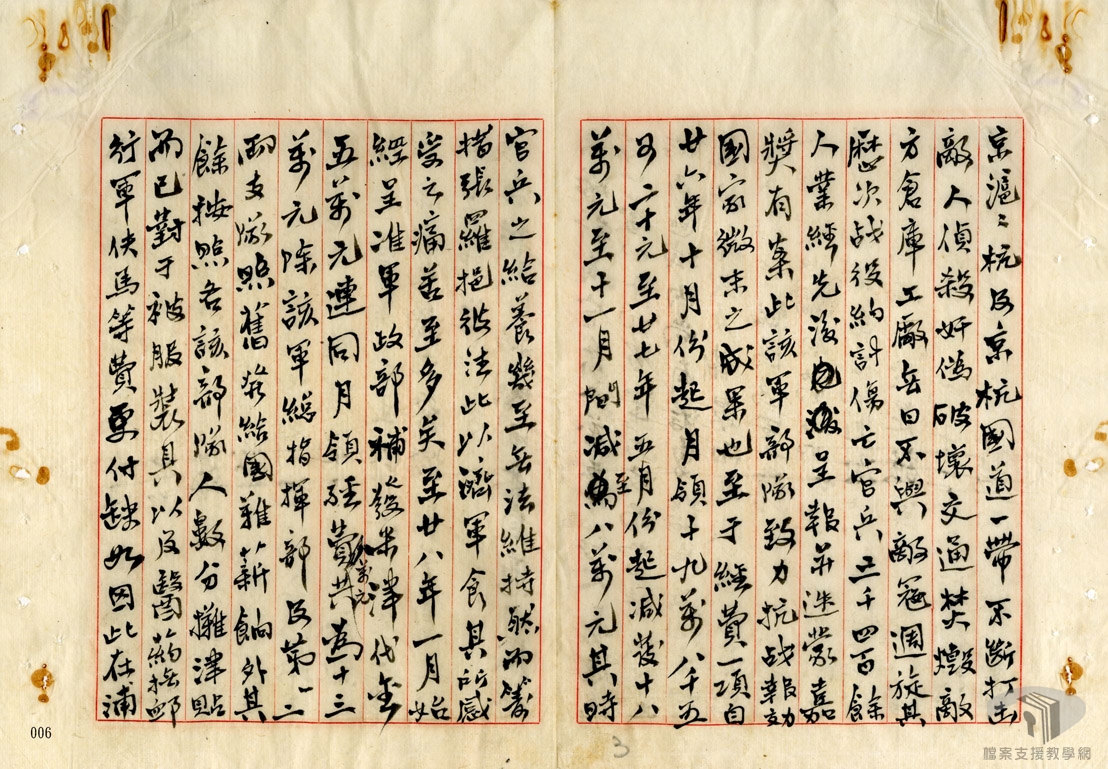 京滬〻杭及京杭國道一帶不斷打击
敵人偵殺奸偽破壞交通焚燬敵
方倉庫工廠無日不與敵寇週旋其
歷次战役約計傷亡官兵三千四百餘
人業經先後呈報并迭蒙嘉
獎有案此該軍部隊致力抗战報効
國家微末之成果也至于經費一項自
廿六年十月份起月領十九萬八千五
百二十元至廿七年五月份起減發十八
萬元至十一月間減至八萬元其時
官兵之給養幾至無法維持然而籌
措張羅挹彼注此以濟軍食其所感
受之痛苦至多矣至廿八年一月始
經呈准軍政部補發米津代金
五萬元連同月領經費八萬元共為十三
萬元除該軍總指揮部及第一二
兩支隊照舊發給國難薪餉外其
餘按照各該部隊人數分攤津貼
而已對于被服裝具以及醫葯
行軍伕馬等費更付缺如因此在浦
006
3
檔案支援教學網